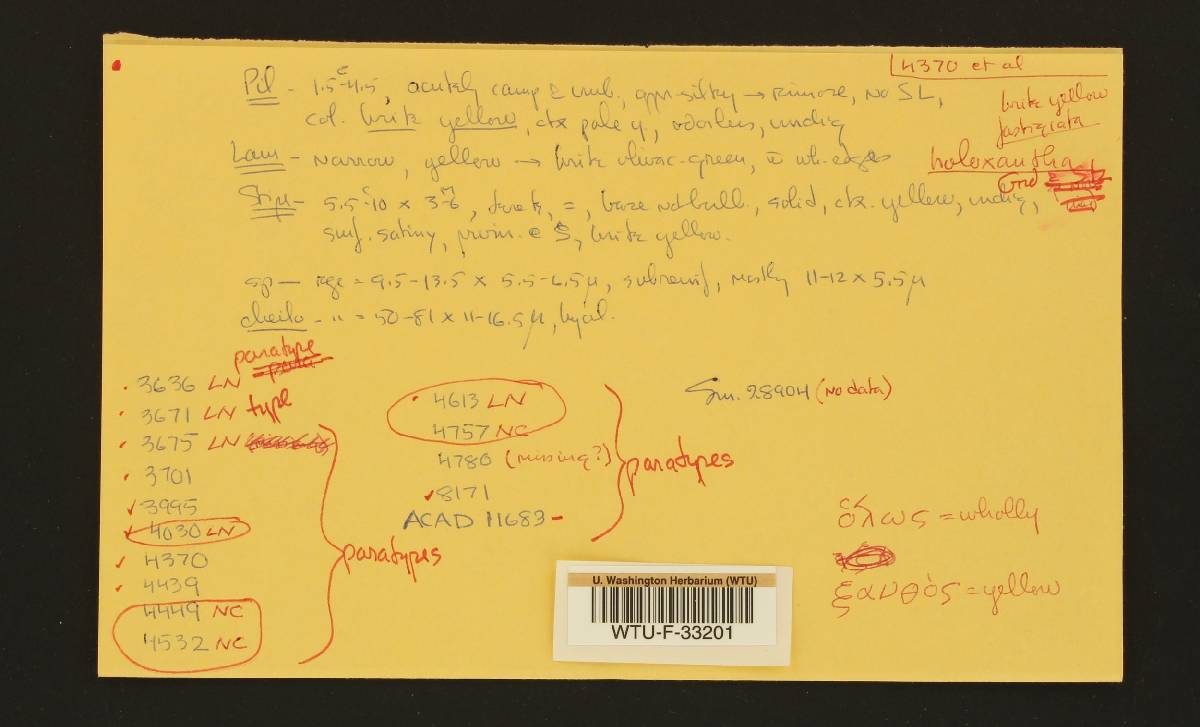 4370 et al
Pil - 1.5-4.5, acutely camp c umb., appr-silky → rimose, no SL,
brite yellow
col. brite yellow, ctx pale y., odorless, undiq
fastigiata
Lam - narrow, yellow → brite olivac-green, c wh. edges
holoxantha
Stip - 5.5-10 x 3-6, terete, =, base not bulb., solid, ctx. yellow, undiq,
surf. satiny, pruin. brite yellow.
sp - rge = 9.5-13.5 x 5.5-6.5µ, subrenif, mostly 11-12 x 5.5µ
cheilo - " = 50-81 x 11-16.5µ, hyal.
paratype
3636 LN
3671 LN type
3675 LN
3701
3995
4030 LN
4370
4439
4449 NC
4532 NC
paratypes
4613 LN
4757 NC
4780 (missing?)
8171
ACAD 11683
paratypes
Sm. 28904 (no data)
ὅλως = wholly
ξανθὸς = yellow
U. Washington Herbarium (WTU)
WTU-F-33201